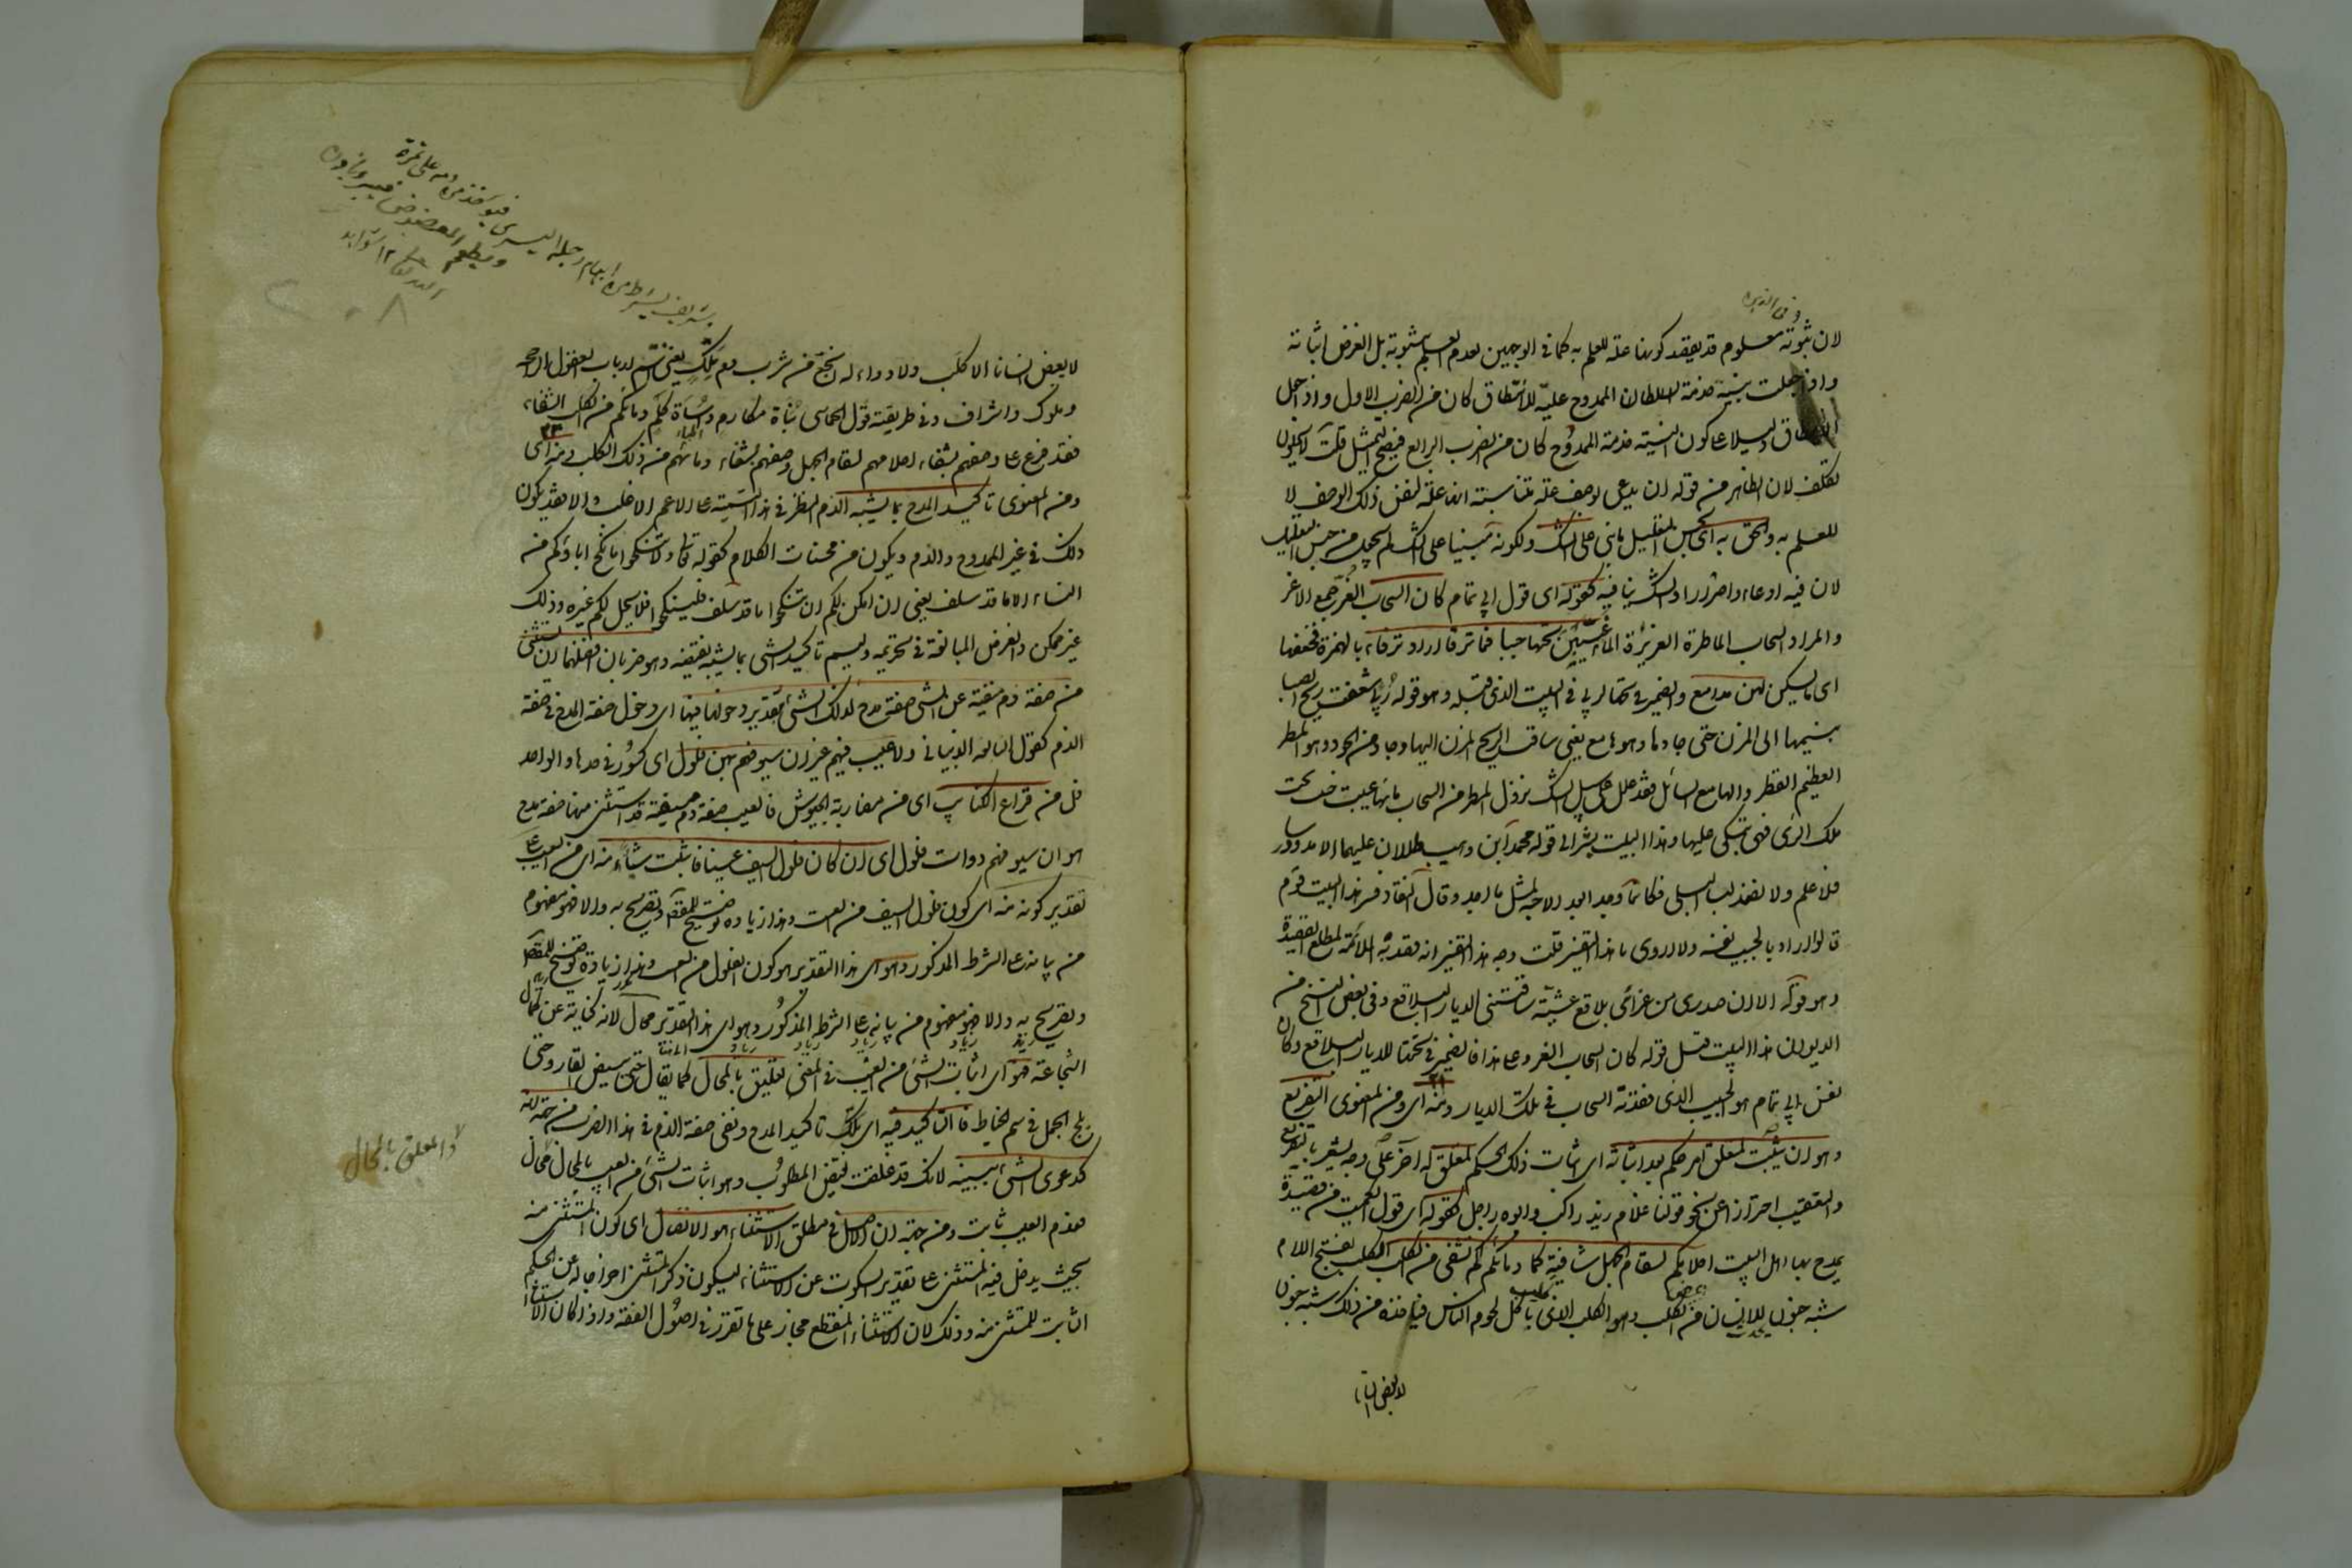 لان ثبوته معلوم قد يقصد كونها علة للعلم به كما في الوجهين لعدم العلم بثبوته بل الغرض اثباته
واذ جعلت نية خدمة الممدوح علة للانتطاق كان من الضرب الاول واذ جعل
الانتطاق دليلا على كون النية خدمة الممدوح كان من الضرب الرابع فيصح التمثيل قلت لا يخلو
تكلف لان الظاهر من قوله ان يدعى لوصف علة مناسبة انها علة لنفس ذلك الوصف لا
للعلم به والحق به اى بحسن التعليل ما بنى على الشك ولكونه مبنيا على الشك لم يجعل من حسن التعليل
لان فيه ادعاء واصرارا والشك ينافيه كقوله اى قول ابي تمام كان السحاب الغر جمع الاغر
والمراد السحاب الماطرة الغزيرة الماء غيبن تحتها حبيبا فما ترقا اراد ترقاء بالهمزة فخففها
اى ما يسكن لهن مدامع والضمير في تحتها لربى في البيت الذى قبله وهو قوله ربى شفعت ريح الصبا
بنسيمها الى المزن حتى جادها وهو هامع يعني ساقت الريح المزن اليها وجاد من الجود وهو المطر
العظيم القطر والهامع السائل فقد علل على سبيل الشك نزول المطر من السحاب بانها غيبت حبيبا تحت
تلك الربى فهى تبكى عليها وهذا البيت يشير الى قوله محمد بن وهيب طللان طال عليهما الامد درسا
فلا علم ولا نضد لبسا البلى فكانما وجدا بعد الاحبة مثل ما اجد وقال
قالوا اراد بالحبيب نفسه ولا ادرى ما هذا التفسير قلت وجه هذا التفسير انه
وهو قوله الا ان صدرى من عزائى بلاقع عشية شاقتنى الديار البلاقع وفى بعض النسخ من
الديوان هذا البيت قبل قوله كان السحاب الغر وعلى هذا فالضمير في تحتها للديار البلاقع وكان
نفس ابي تمام هو الحبيب الذى فقدته السحاب في تلك الديار ومنه اى ومن المعنوى التفريع
وهو ان يثبت لمتعلق امر حكم بعد اثباته اى اثبات ذلك الحكم لمتعلق له آخر على وجه يشعر بالتفريع
والتعقيب احترازا عن نحو قولنا غلام زيد راكب وابوه راجل كقوله اى قول الكميت من قصيدة
يمدح بها اهل البيت احلامكم لسقام الجهل شافية كما دماؤكم تشفى من الكلب الكلب بفتح اللام
شبه جنون يحدث للانسان من عض الكلب الكلب وهو الكلب الذى ياكل لحوم الناس فياخذه من ذلك شبه جنون
لا يعض انسانا
لا يعض انسانا الا كلب ولا دواء له انجع من شرب دم ملك يعني انتم ارباب العقول الراجحة
وملوك واشراف وفى طريقته قول الحماسى بناة مكارم واساة كلم دماؤكم من الكلب الشفاء
فقد فرع على وصفهم بشفاء احلامهم لسقام الجهل وصفهم بشفاء دمائهم من ذلك الكلب ومنه اى
ومن المعنوى تاكيد المدح بما يشبه الذم النظر في هذا التسمية على الاعم الاغلب والا فقد يكون
ذلك في غير المدح والذم ويكون من محسنات الكلام كقوله تعالى ولا تنكحوا ما نكح اباؤكم من
النساء الا ما قد سلف يعني ان امكن لكم ان تنكحوا ما قد سلف فلتنكحوا فلا يحل لكم غيره وذلك
غير ممكن والغرض المبالغة في تحريمه وليسم تاكيد الشىء بما يشبه نقيضه وهو ضربان افضلهما ان يستثنى
من صفة ذم منفية عن الشىء صفة مدح لذلك الشىء بتقدير دخولها فيها اى دخول صفة المدح في صفة
الذم كقول النابغة الذبيانى ولا عيب فيهم غير ان سيوفهم بهن فلول اى كسور في حدها والواحد
فل من قراع الكتائب اى من مضاربة الجيوش فالعيب صفة ذم منفية قد استثنى منها صفة مدح
هو ان سيوفهم ذوات فلول اى ان كان فلول السيف عيبا فاثبت شيئا منه اى من العيب على
تقدير كونه منه اى كون فلول السيف من العيب وهذا زيادة توضيح للمقصود وتصريح به والا فهو مفهوم
من بيانه على الشرط المذكور وهو اى هذا التقدير هو كون الفلول من العيب وهذا زيادة توضيح للمقصود
وتصريح به والا فهو مفهوم من بيانه على الشرط المذكور وهو اى هذا التقدير محال لانه كناية عن كمال
الشجاعة فهو اى اثبات الشىء من العيب في المعنى تعليق بالمحال كما يقال حتى يبيض القار وحتى
يلج الجمل في سم الخياط فالتاكيد فيه اى تلك تاكيد المدح ونفى صفة الذم في هذا الضرب من جهة انه
كدعوى الشىء ببينة لانك قد علقت نقيض المطلوب وهو اثبات الشىء من العيب بالمحال محال
والمعلق بالمحال
فعدم العيب ثابت ومن جهة ان الاصل في مطلق الاستثناء هو الاتصال اى كون المستثنى منه
بحيث يدخل فيه المستثنى على تقدير السكوت عن الاستثناء ليكون ذكر المستثنى اخراجا له عن الحكم
الثابت للمستثنى منه وذلك لان الاستثناء المنقطع مجاز على ما تقرر في اصول الفقه واذا كان الاستثناء